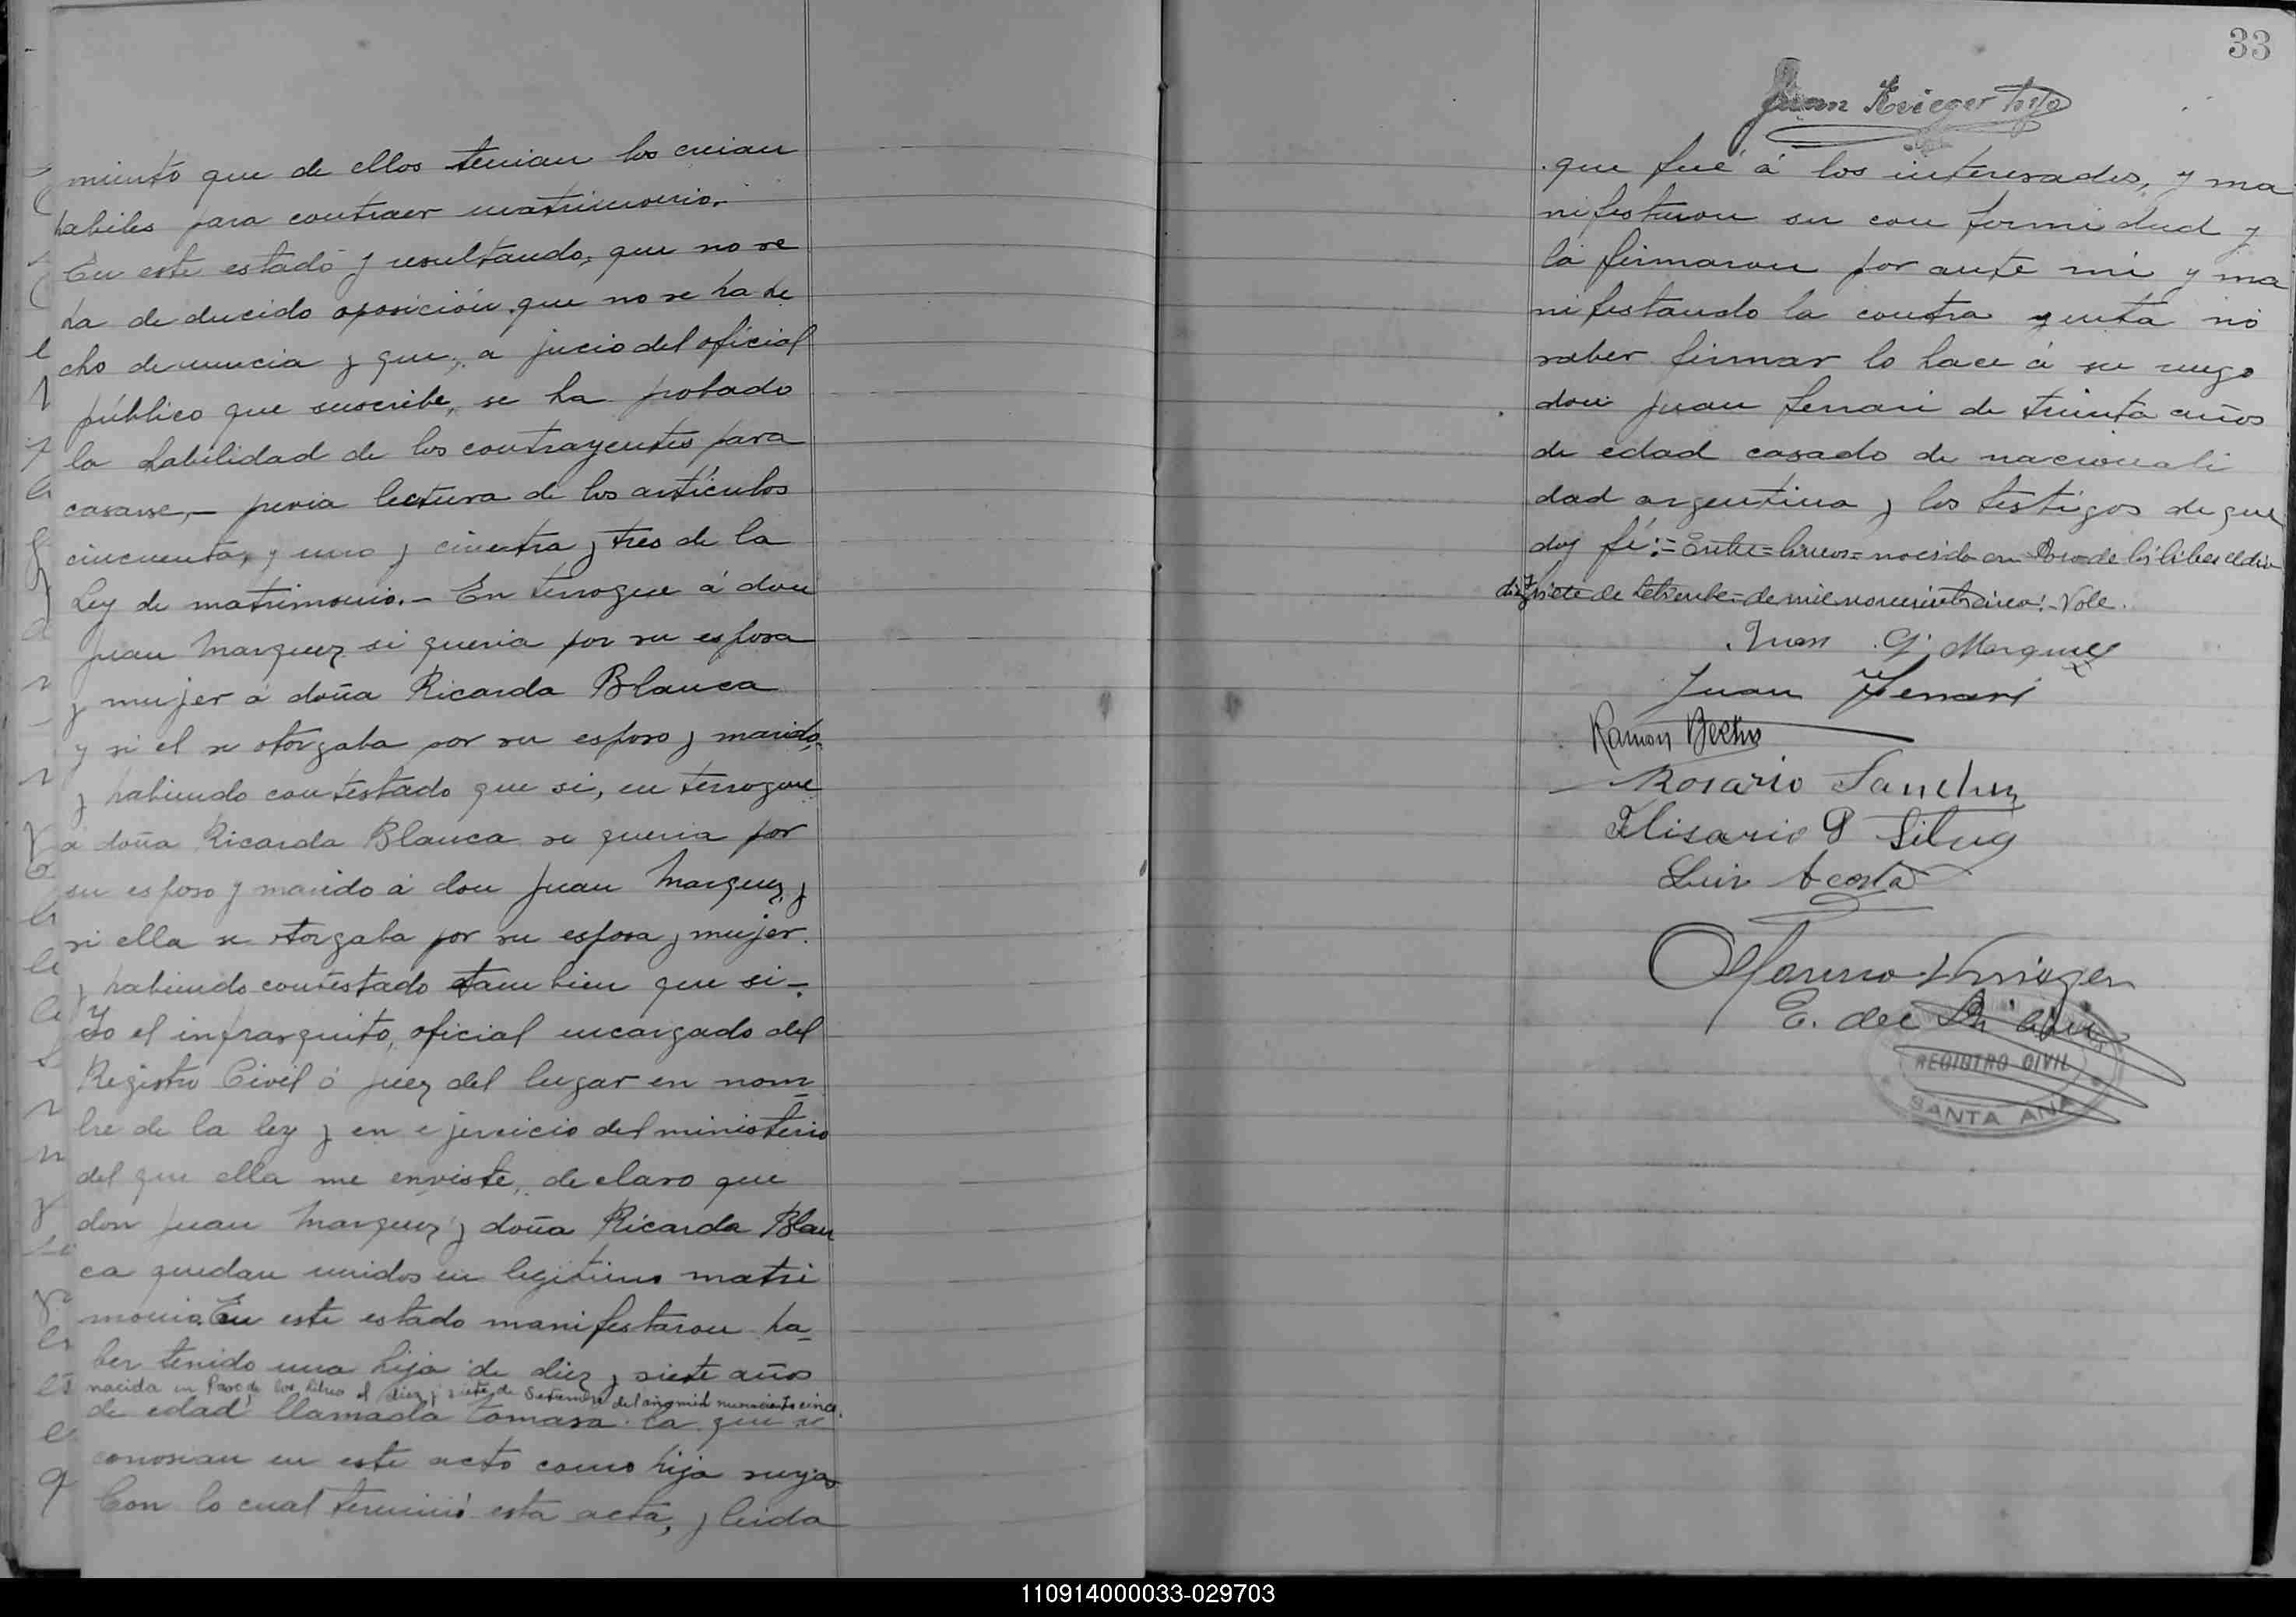 miento que de ellos tenian los creian
habiles para contraer matrimonio.
En este estado y resultando, que no se
ha de ducido oposición que no se ha he
cho denuncia y que, a jucio del oficial
público que suscribe, se ha probado
la habilidad de los contrayentes para
casarse,— previa lectura de los artículos
cincuenta, y uno y cincuenta y tres de la
Ley de matrimonio.— En terrogue á don
Juan Marquez si queria por su esposa
y mujer á doña Ricarda Blanca
y si el se otorgaba por su esposo y marido,
y habiendo contestado que si, en terrogue
á doña Ricarda Blanca se queria por
su esposo y marido á don Juan Marquez, y
si ella se otorgaba por su esposa y mujer.
y habiendo contestado tam bien que si—.
Yo el infrasquito, oficial encargado del
Registro Civil ó juez del lugar en nom
bre de la ley y en ejercicio del ministerio
del que ella me enviste, de claro que
don Juan Marquez y doña Ricarda Blan
ca quedan unidos en legitimo matri
monio. En este estado manifestaron ha-
ber tenido una hija de diez y siete años
nacida en Paso de los Libres el diez y siete de Setiembre del año mil novecientos cinco.
de edad llamada tomasa la que re
conosian en este acto como hija suya
Con lo cual terminó esta acta, y leida
33
Juan Krieger hijo
que fué á los interesados, y ma
nifestaron su con formi dad y
la firmaron por ante mi y ma
nifestando la contra yenta no
saber firmar lo hace á su ruego
don Juan ferrari de treinta años
de edad casado de nacionali
dad argentina y los testigos de que
doy fé:= Entre=lineas= nacida en Paso de los libres el dia
diez y siete de Setiembre= de mil novecientos cinco:- Vale.
Juan G. Marquez
Juan Ferrari
Ramon
Rosario Sanchez
Elisario P Silva
Luis Acosta
E. del
REGISTRO CIVIL
SANTA ANA
110914000033-029703